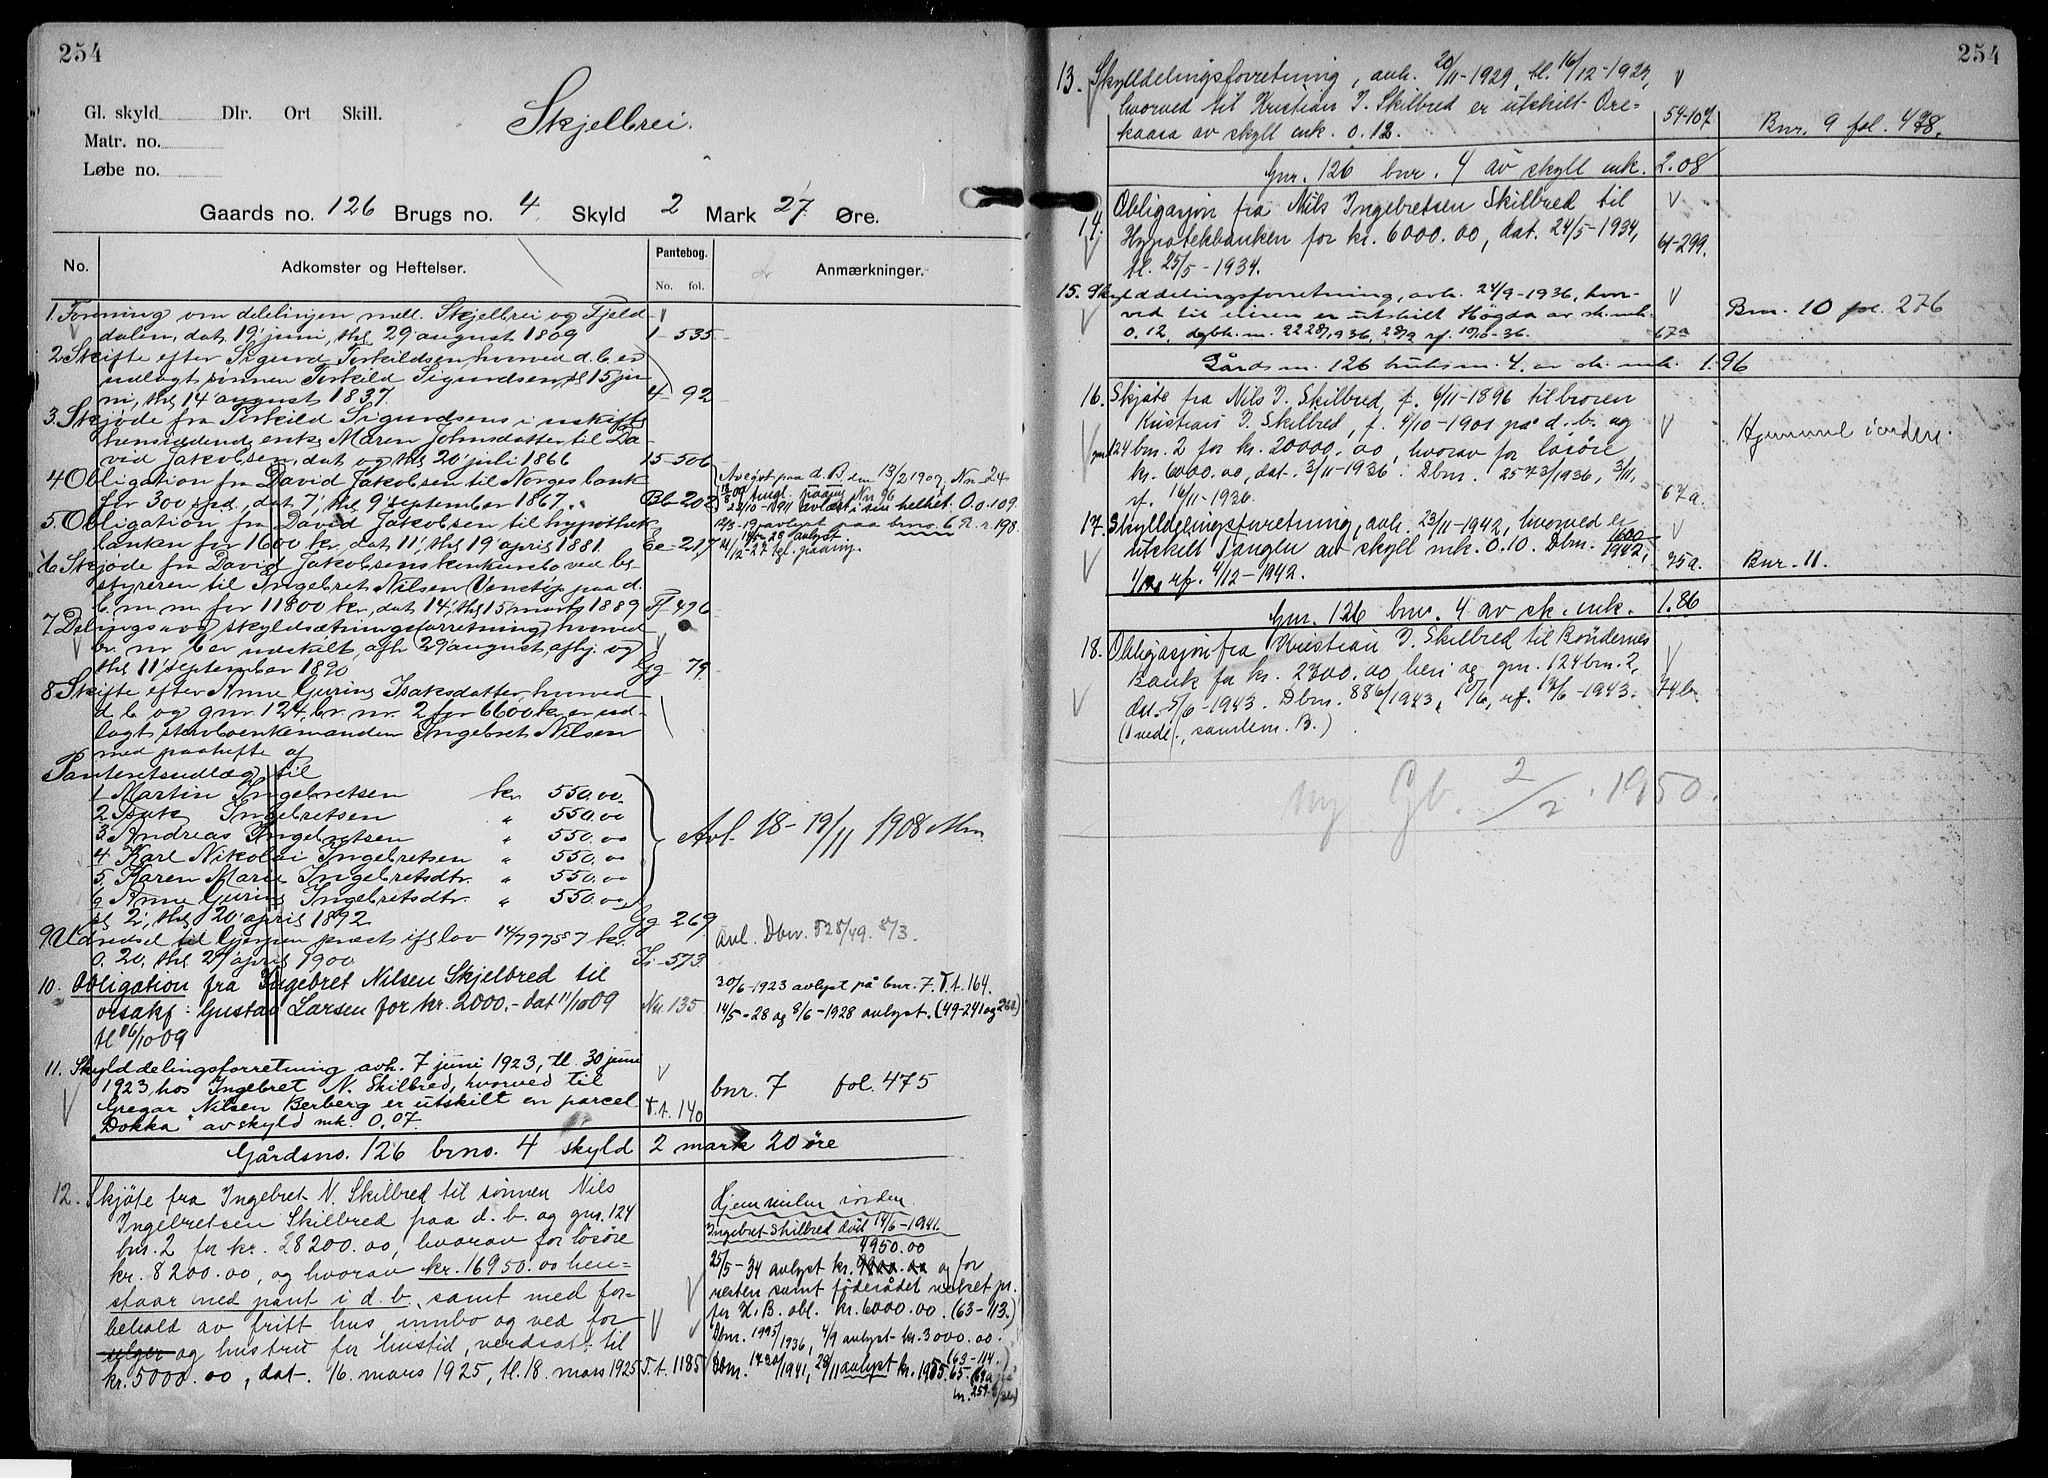 254
Gl. skyld Dlr. Ort Skill.
Skjelbrei.
Matr. no.
Løbe no.
Gaards no. 126 Brugs no. 4 Skyld 2 Mark 27 Øre.
No. Adkomster og Heftelser. Pantebog. Anmærkninger.
No. fol.
1 Forening om delelinjen mell. Skjelbrei og Fjeld-
dalen, dat 19' juni, thl 29 august 1809 1-535
2 Skifte efter Sigurd Terkildsen, hvorved d. b. er
udlagt sønnen Terkild Sigurdsen, sl 15 ju-
ni, thl 14' august 1837. 4- 92
3. Skjøde fra Terkild Sigurdsens i uskiftet
hensiddende enke Maren Johnsdatter til Da-
vid Jakobsen, dat og thl 20' juli 1866 15-506
4 Obligation fra David Jakobsen til Norges bank
for 300 spd., dat 7', thl 9' september 1867. Bb-202
Avløst paa d. B. den 13/2 1909. Nn-24
5. Obligation fra David Jakobsen til hypothek-
banken for 1600 kr, dat 11', thl 19' april 1881. Ee-217
12/3-19 avlyst paa brno. 6 R. r. 198.
6 Skjøde fra David Jakobsens konkursbo ved be-
styreren til Ingebret Nilsen Venstøp paa d.
b. m. m for 11800 kr, dat 14', thl 15 marts 1889 Ff 496
7 Delings- og skyldsætningsforretning, hvorved
br. nr 6 er udskilt, afh 29 august, afhj. og
thl 11' september 1890 Gg- 79
8 Skifte efter Anne Gurine Isaksdatter, hvorved
d. b. og gnr. 124, br. nr. 2 for 6600 kr. er ud-
lagt stervboenkemanden Ingebret Nilsen
med paahefte af
Panteretsudlæg til
1 Martin Ingebretsen kr 550.00.
2 Isak Ingebretsen " 550.00
3. Andreas Ingebretsen " 550.00
4 Karl Nikolai Ingebretsen " 550.00
5. Karen Marie Ingebretsdtr. " 550.00
6 Anne Gurine Ingebretsdtr. " 550.00
Avl. 18-19/11 1908
sl 2', thl 20' april 1892 Gg 269
9 Udredsel til Gjerpen præst ifg lov 14/7 97 § 7 kr.
0.20, thl 27 april 1900 Ii-573
Avl. Dbnr. 828/49. 8/3.
10. Obligation fra Ingebret Nilsen Skjelbred til
orsakf. Gustav Larsen for kr. 2000.- dat 11/10 09 Nn. 135
tl 16/10 09
30/6-1923 avlyst på bnr. 7. T.t. 164.
14/5-28 og 8/6-1928 avlyst. (49-241 og 262)
11. Skylddelingsforretning avh. 7 juni 1923, tl. 30 juni
1923 hos Ingebret N. Skilbred, hvorved til
Gregar Nilsen Berberg er utskilt en parcel
"Dokka" av skyld mk. 0,07. T.t. 140
bnr. 7 fol. 475
Gårdsno. 126 brno. 4 skyld 2 mark 20 øre
12. Skjøte fra Ingebret N. Skilbred til sønnen Nils
Ingebretsen Skilbred paa d. b. og gnr. 124
bnr. 2 for kr. 28200.00, hvorav for løsøre
kr. 8200.00, og hvorav kr. 16950.00 hen-
staar med pant i d. b., samt med for-
behold av fritt hus, innbo og ved for
selger og hustru for livstid, verdsat til
kr. 5000.00, dat. 16. mars 1925, tl. 18. mars 1925 T.t. 1185
Hjemmelen iorden.
Ingebret Skilbred død 14/6-1941
4950.00
25/5-34 avlyst kr. og for
resten samt føderådet veket pr.
for H. B. obl. kr. 6000.00. (63-113.)
Dbnr. 1995/1936, 4/9 avlyst kr. 3000.00.
(63-114.)
Dbnr. /1941, 28/11 avlyst kr. 1905.65.
254
13. Skylldelingsforretning, avh. 20/11-1929, tl. 16/12-1929,
hvorved til Kristian I. Skilbred er utskilt Ore-
kaasa av skyll mk. 0.12. 54-107 Bnr. 9 fol. 478.
Gnr. 126 bnr. 4 av skyll mk. 2.08
14. Obligasjon fra Nils Ingebretsen Skilbred til
Hypotekbanken for kr. 6000.00, dat. 24/5-1934, 61-299.
tl. 25/5-1934.
15. Skylddelingsforretning, avh. 24/9-1936, hvor-
ved til eieren er utskilt Høgda av sk. mk.
0.12, dagbk. nr. 2228/1936, 28/9 rf. 10/10-36. 67a Bnr. 10 fol. 276
Gårdsnr. 126 bruksnr. 4. av sk. mk. 1.96
16. Skjøte fra Nils I. Skilbred, f. 6/11-1896 til broren
Kristian I. Skilbred, f. 4/10-1901 på d. b. og
gnr. 124 bnr. 2 for kr. 20000.00, hvorav for løsøre
kr. 6000.00, dat. 3/11-1936. Dbnr. 2573/1936, 3/11,
rf. 16/11-1936. 67a.
Hjemmel iorden.
17. Skylldelingsforretning, avh. 23/11-1942, hvorved er
utskilt Tangen av skyll mk. 0.10. Dbnr. 1600/1942,
1/12, rf. 4/12-1942. 75a. Bnr. 11.
Gnr. 126 bnr. 4 av sk. mk. 1.86
18. Obligasjon fra Kristian I. Skilbred til Bøndernes
Bank for kr. 2300.00 heri og gnr. 124 bnr. 2,
dat. 5/6-1943. Dbnr. 886/1943, 10/6, rf. 12/6-1943. 74b
samlem. B.)
Ny Gb. 2/2. 1950.